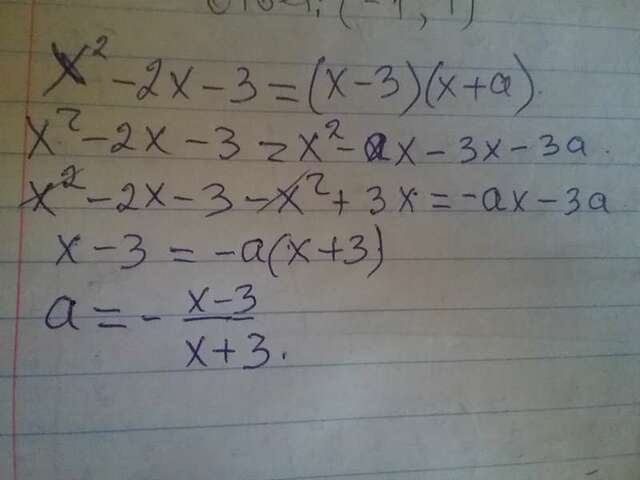 x² - 2x - 3 = (x-3)(x+a).
x² - 2x - 3 = x² - ax - 3x - 3a.
x² - 2x - 3 - x² + 3x = -ax - 3a
x - 3 = -a(x+3)
a = - \frac{x-3}{x+3}.